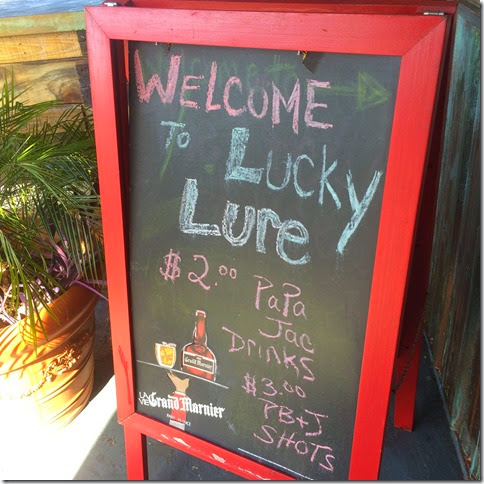 WELCOME
To Lucky
Lure
$2.00 PaPa
Jac
DRINKS
$3.00
PB+J
SHOTS
Grand Marnier
Grand Marnier